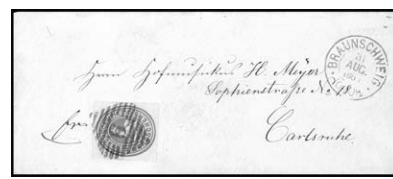 BRAUNSCHWEIG
31
AUG.
Herrn Hofmusikus H. Meyer
Sophienstraße No. 18.
Carlsruhe.